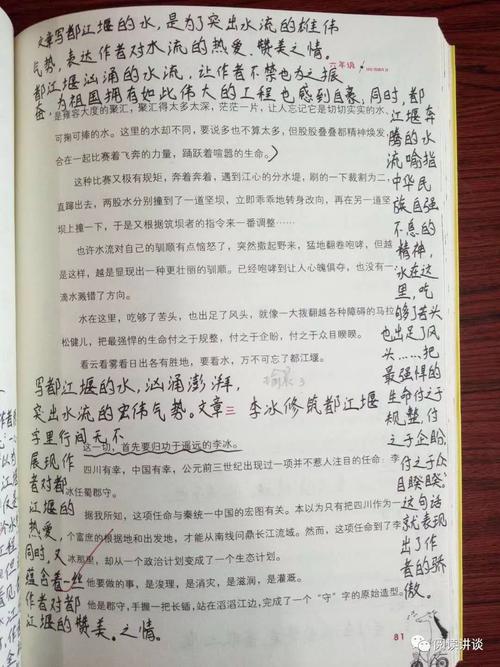 文章写都江堰的水，是为了突出水流的雄伟
气势，表达作者对水流的热爱、赞美之情。
六年级
都江堰汹涌的水流，让作者不禁也为之振
奋，为祖国拥有如此伟大的工程也感到自豪，同时，都
江堰奔
腾的水
流喻指
中华民
族自强
不息的
精神，
水在这
里，吃
够了苦头
也出足了风
头……把
最强悍的
生命付之于
规整，付
之于企盼，
付之于众目
睽睽”
这句话
就表现
出了作
者的骄
傲。
是雍容大度的聚汇，聚汇得太多太深，茫茫一片，让人忘记它是切切实实的水，
可掬可捧的水。这里的水却不同，要说多也不算太多，但股股叠叠都精神焕发，
合在一起比赛着飞奔的力量，踊跃着喧嚣的生命。
这种比赛又极有规矩，奔着奔着，遇到江心的分水堤，刷的一下裁割为二，
直蹿出去，两股水分别撞到了一道坚坝，立即乖乖地转身改向，再在另一道坚
坝上撞一下，于是又根据筑坝者的指令来一番调整……
也许水流对自己的驯顺有点恼怒了，突然撒起野来，猛地翻卷咆哮，但越
是这样，越是显现出一种更壮丽的驯顺。已经咆哮到让人心魄俱夺，也没有一
滴水溅错了方向。
水在这里，吃够了苦头，也出足了风头，就像一大拨翻越各种障碍的马拉
松健儿，把最强悍的生命付之于规整，付之于企盼，付之于众目睽睽。
看云看雾看日出各有胜地，要看水，万不可忘了都江堰。
写都江堰的水，汹涌澎湃，
突出水流的宏伟气势。文章三 李冰修筑都江堰
字里行间无不
展现作
者对都
江堰的
热爱，
同时，又
蕴含着一丝
作者对都
江堰的赞美之情。
这一切，首先要归功于遥远的李冰。
四川有幸，中国有幸，公元前三世纪出现过一项并不惹人注目的任命：李
冰任蜀郡守。
据我所知，这项任命与秦统一中国的宏图有关。本以为只有把四川作为一
个富庶的根据地和出发地，才能从南线问鼎长江流域。然而，这项任命到了李
冰那里，却从一个政治计划变成了一个生态计划。
他要做的事，是浚理，是消灾，是滋润，是灌溉。
他是郡守，手握一把长锸，站在滔滔江边，完成了一个“守”字的原始造型。
81
阅频讲谈